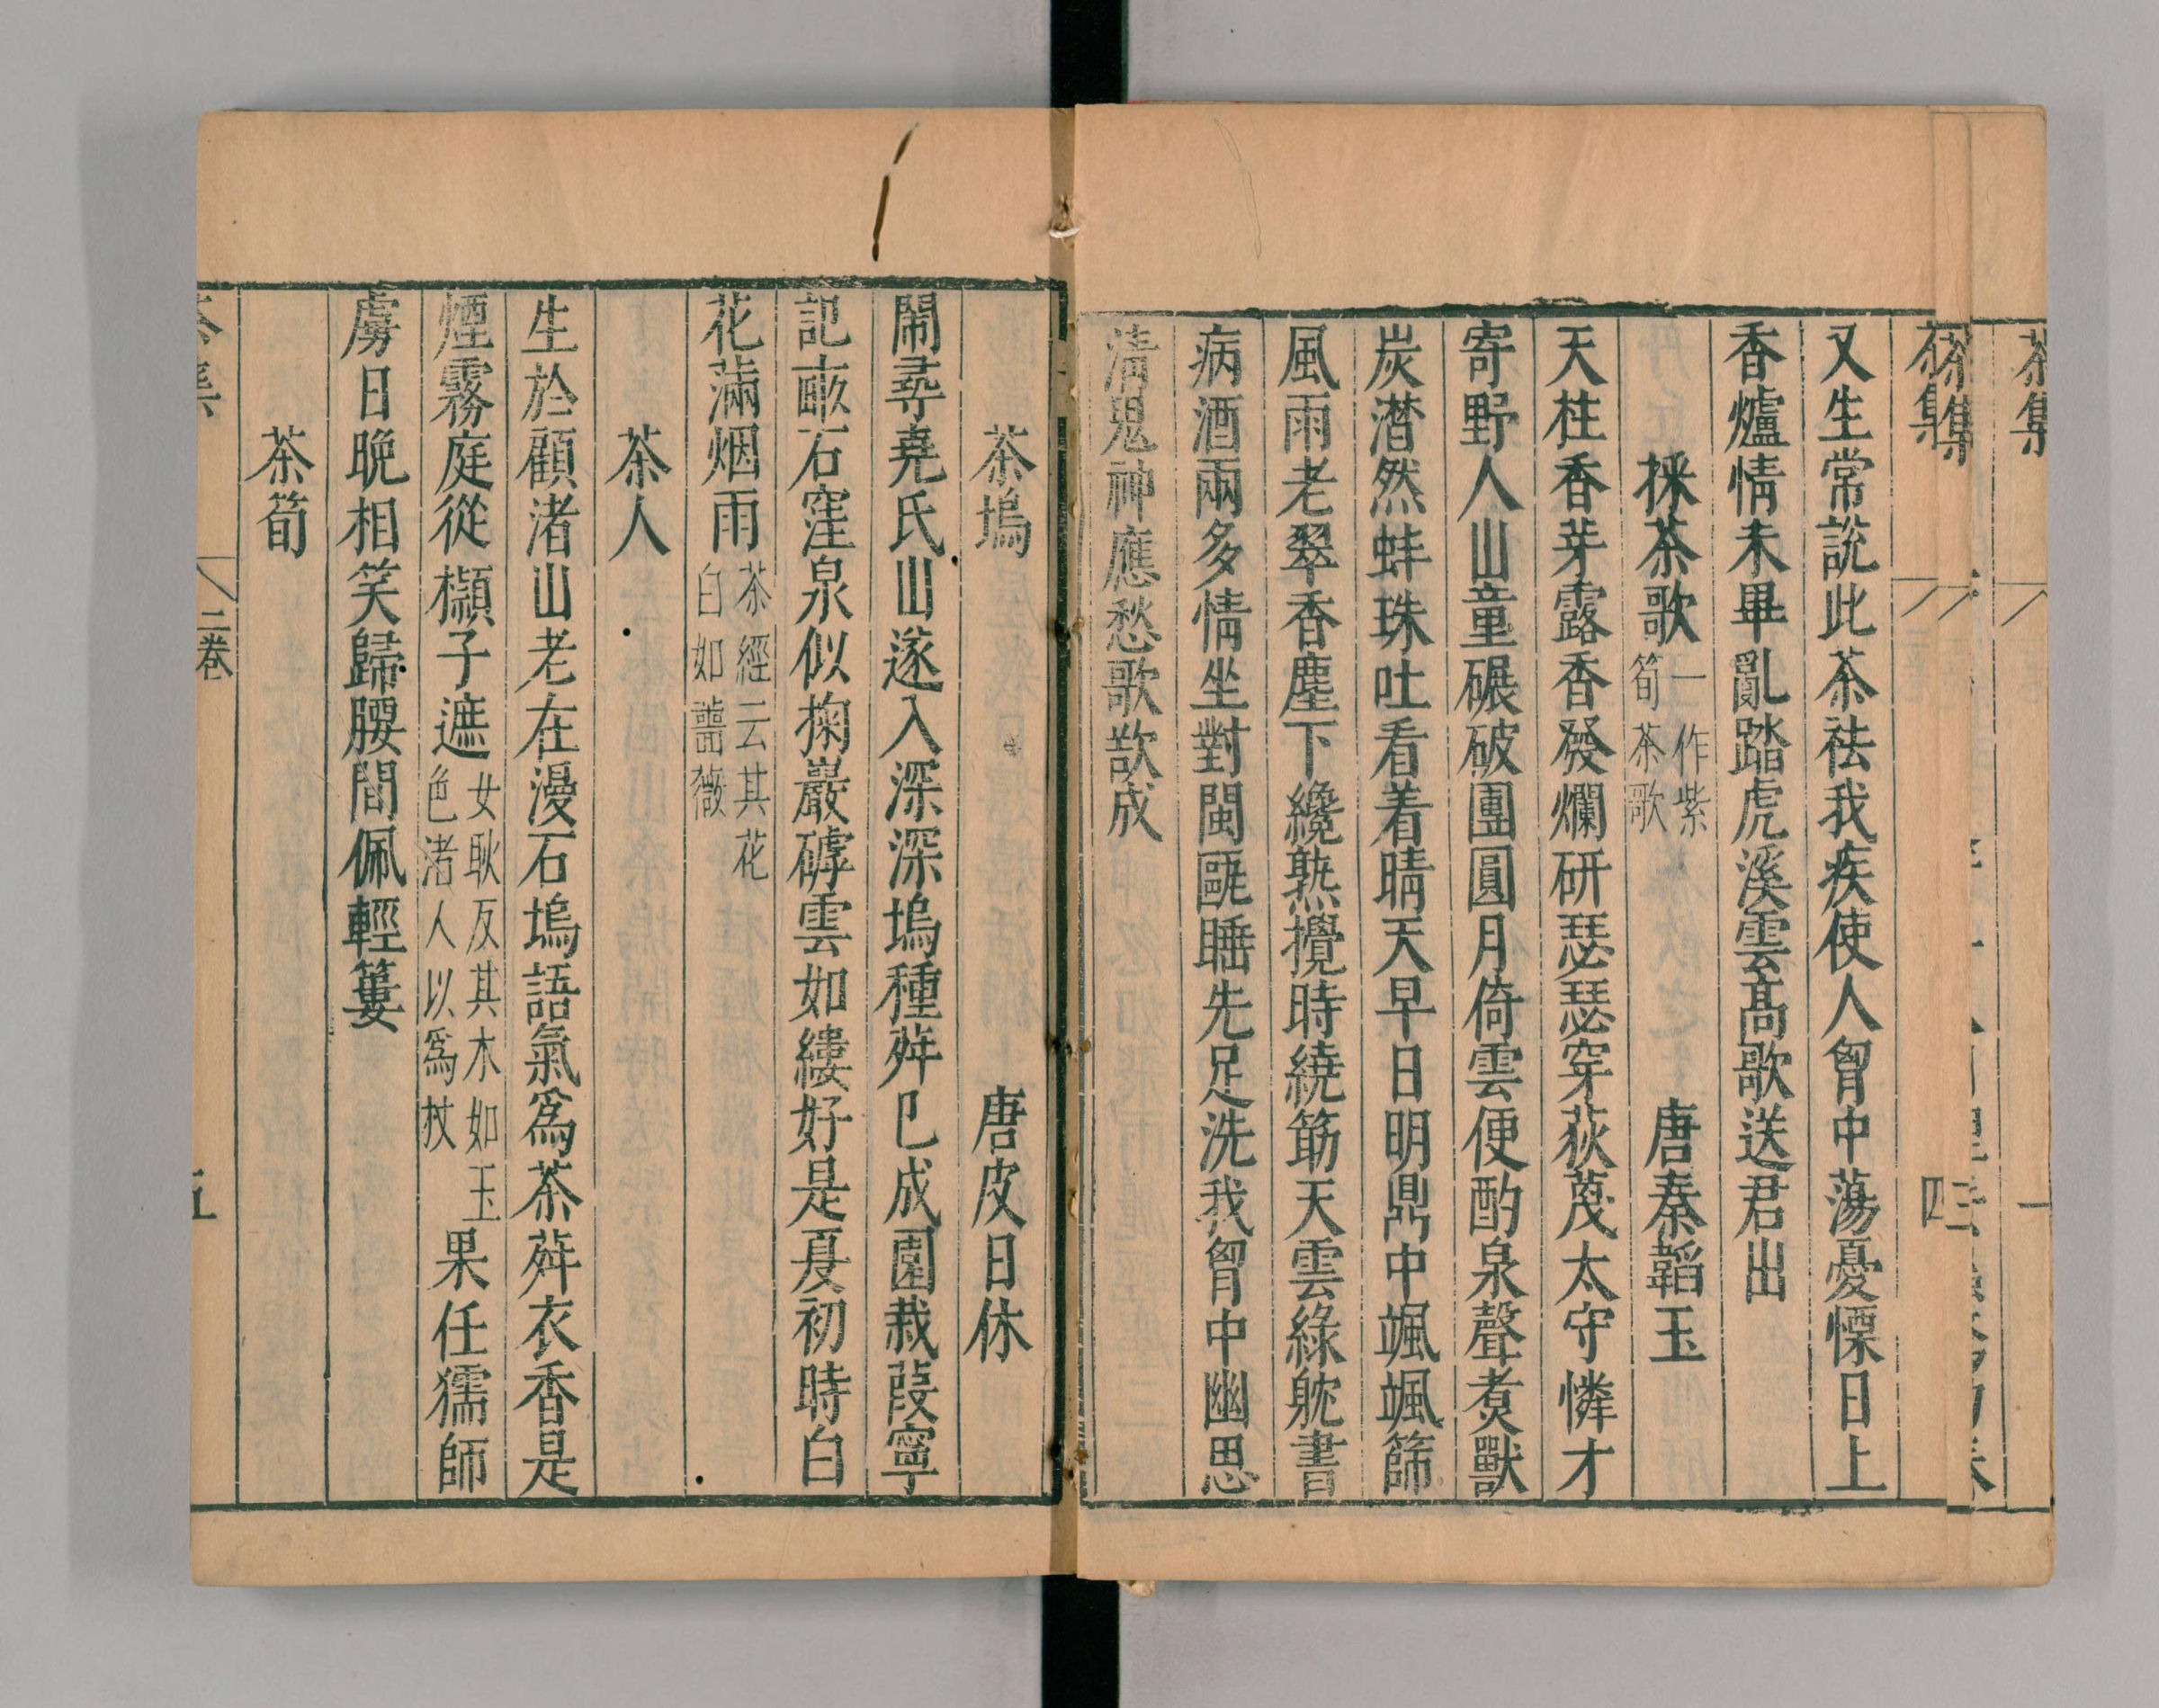 茶集
茶集
茶集
四
又生常說此茶袪我疾使人胷中蕩憂慄日上
香爐情未畢亂踏虎溪雲髙歌送君出
採茶歌一作紫筍茶歌　唐秦韜玉
天柱香芽露香發爛研瑟瑟穿荻蔑太守憐才
寄野人山童碾破團圓月倚雲便酌泉聲煑獸
炭濳然蚌珠吐看着晴天早日明鼎中颯颯篩
風雨老翠香塵下纔熟攪時繞筯天雲綠躭書
病酒兩多情坐對閩甌睡先足洗我胷中幽思
清鬼神應愁歌歆成
茶塢　唐皮日休
鬧尋堯氏山遂入深深塢種荈已成園栽葭寧
記畝石窪泉似掬巖罅雲如縷好是夏初時白
花滿烟雨茶經云其花白如薔薇
茶人
生於顧渚山老在漫石塢語氣爲茶荈衣香是
煙霧庭從㰋子遮女耿反其木如玉色渚人以爲杖果任獳師
虜日晩相笑歸腰間佩輕簍
茶筍
茶集　二巻　五